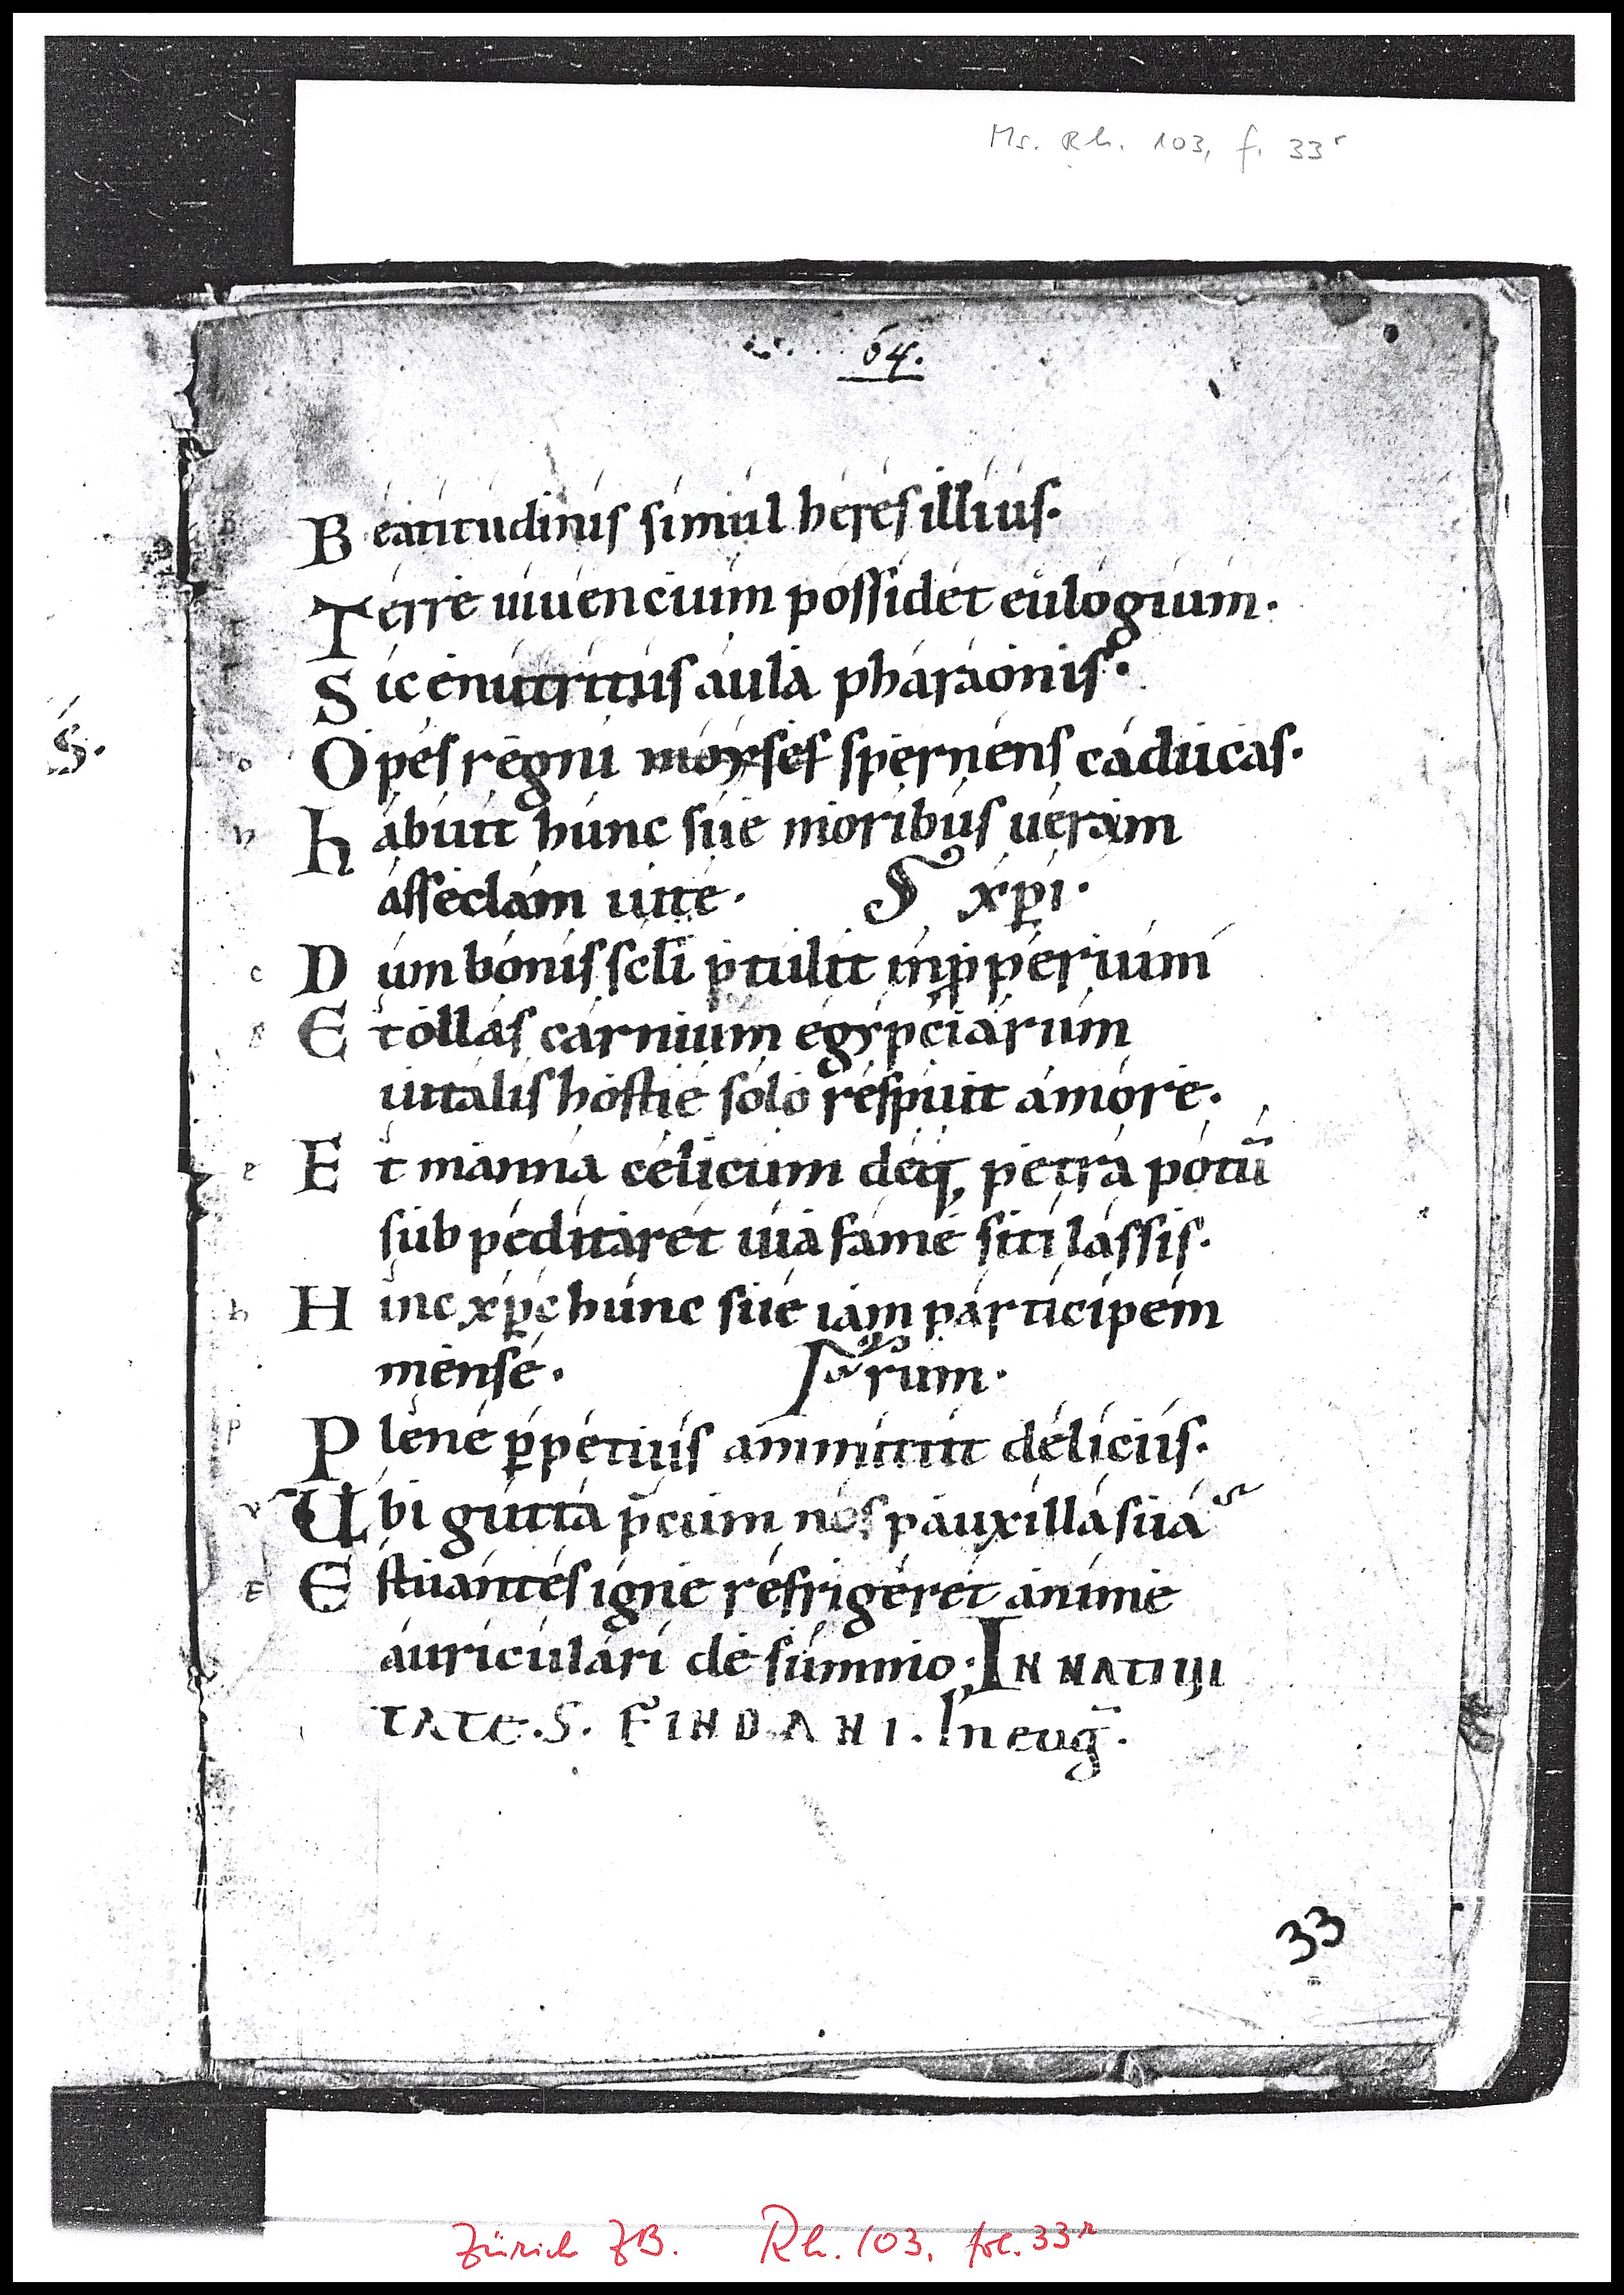 Ms. Rh. 103, f. 33r
64.
Beatitudinis simul heres illius.
Terre viuencium possidet eulogium.
Sic enutritus aula pharaonis.
S.
Opes regni moyses spernens caducas.
habuit hunc sue moribus ueram
asseclam uite. xp̄i.
Dum bonis scl̄i p̄tulit inp̱perium
Et ollas carnium egypciarum
uitalis hostie solo respuit amore.
Et manna celicum deq; petra potū
subpeditaret uia fame siti lassis.
Hinc xp̄c hunc sue iam participem
mense. rum.
Plene p̱petuis ammittit deliciis.
Ubi gutta p̄cum nos pauxilla sua
Estuantes igne refrigeret anime
auriculari de summo. IN NATIUI
TATE. S. FINDANI. In euḡ.
33
Zürich ZB. Rh. 103, fol. 33r